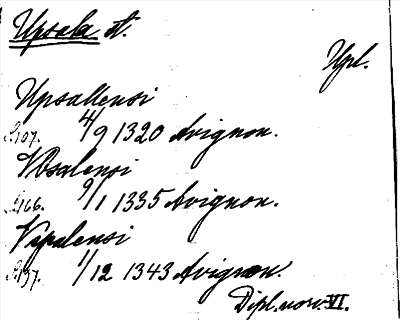 Upsala st.
Upl.
Upsallensi
S. 107. 4/9 1320 Avignon.
Vpsalensi
S. 166. 9/1 1335 Avignon.
Vpsalensi
S. 197. 1/12 1343 Avignon.
Dipl. norv. VI.